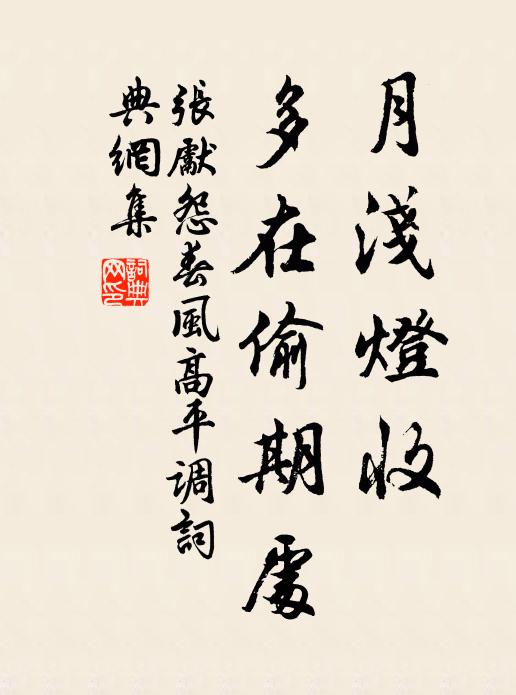 月淺燈收
多在偷期處
張獻怨春風高平調詞
典網集
詞典
网印